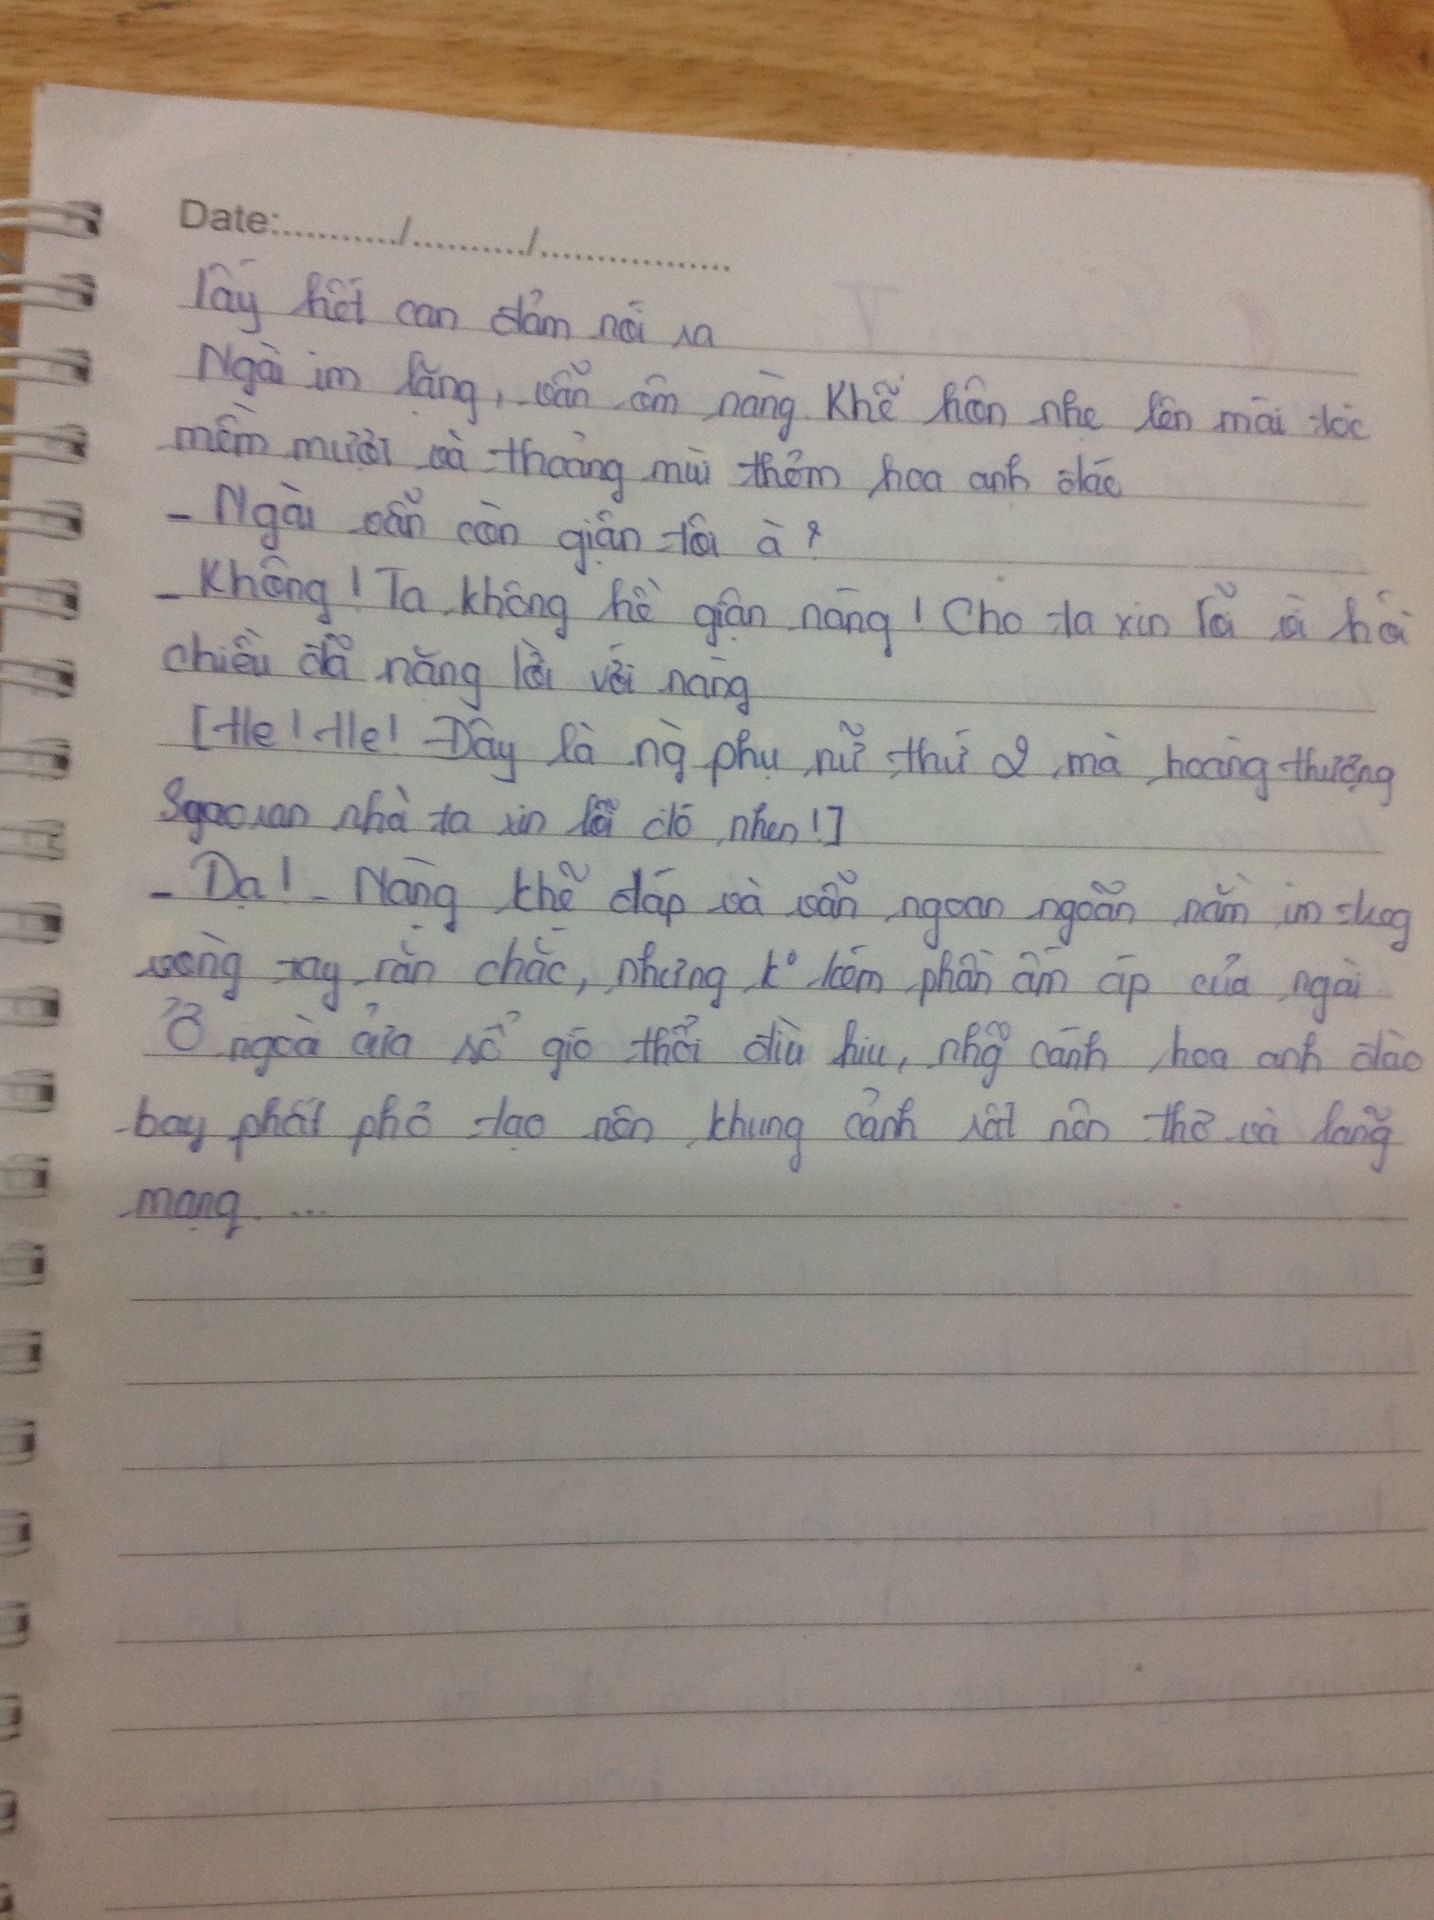 Date:........../........../................
lấy hết can đảm nói ra
Ngài im lặng, vẫn ôm nàng. Khẽ hôn nhẹ lên mái tóc
mềm mượt và thoảng mùi thơm hoa anh đào
- Ngài vẫn còn giận tôi à?
- Không! Ta không hề giận nàng! Cho ta xin lỗi vì hồi
chiều đã nặng lời với nàng
[He! He! Đây là ng` phụ nữ thứ 2 mà hoàng thượng
nhà ta xin lỗi đó nhen!]
- Dạ! - Nàng khẽ đáp và vẫn ngoan ngoãn nằm im
vòng tay rắn chắc, nhưng k° kém phần ấm áp của ngài
Ở ngoài cửa sổ gió thổi dìu hiu, nhg~ cánh hoa anh đào
bay phất phơ tạo nên khung cảnh rất nên thơ và lãng
mạng ...